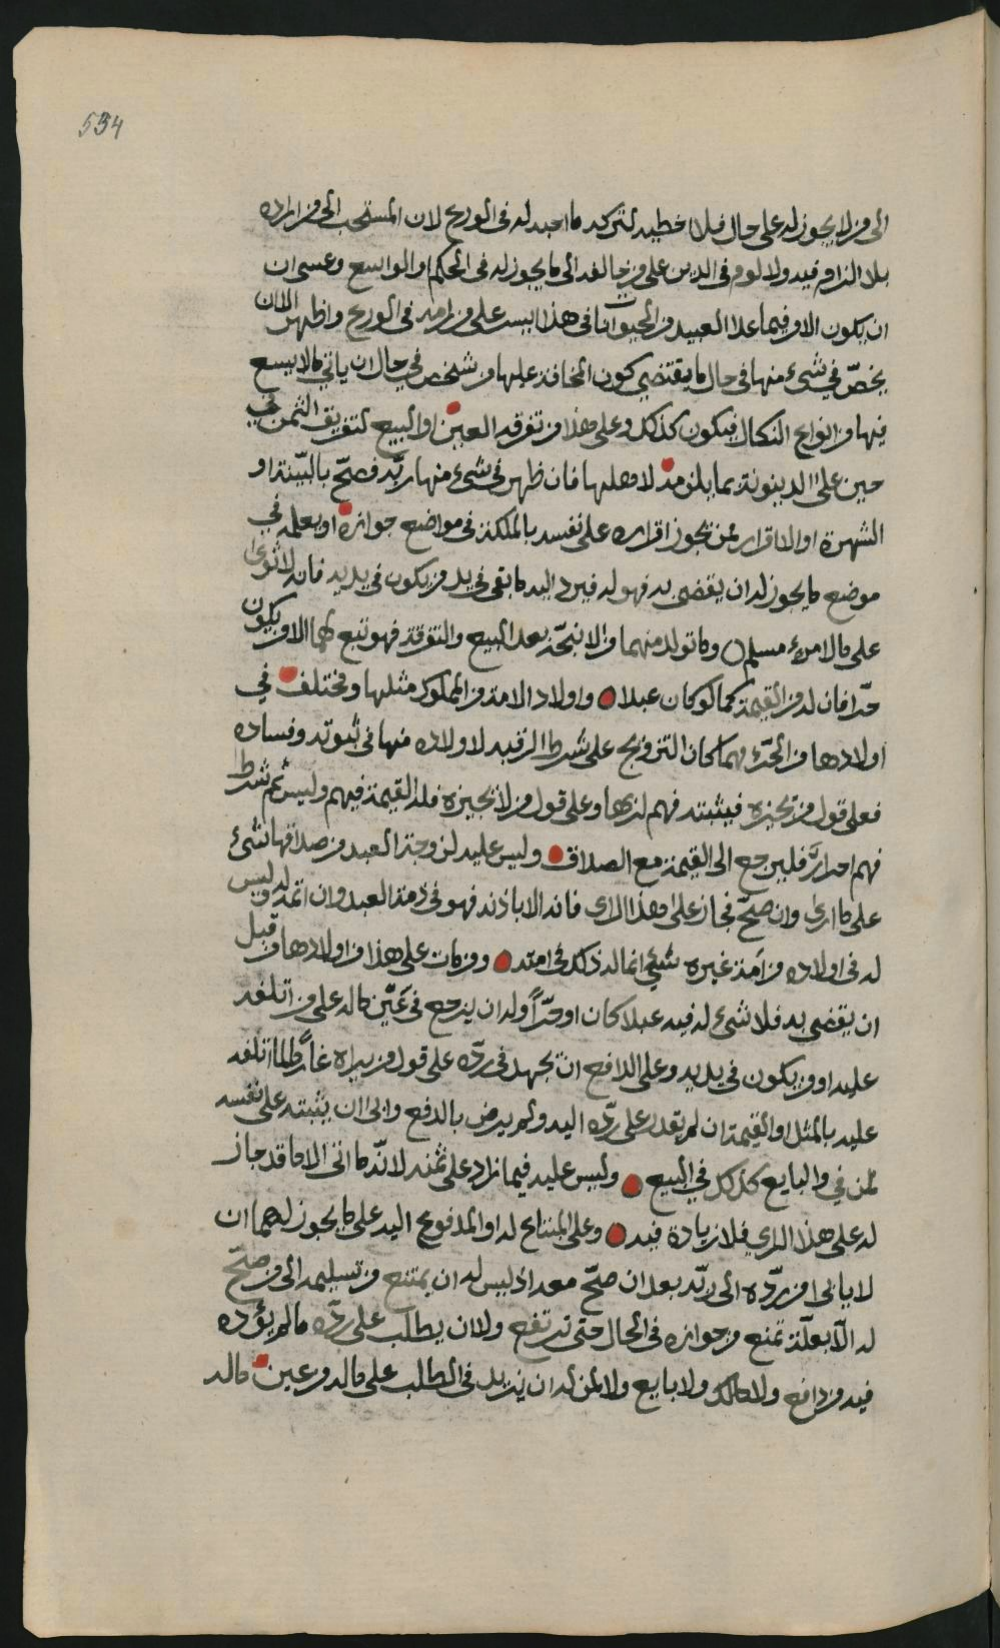 534
الى من لا يجوز له على حال فلا اخطيه لتركه ما احبه له في الورع لان المستحب الى من اراده
بلا الزام فيه ولا لوم في الدين على من خالفه الى ما يجوز له في الحكم او الواسع وعسى ان
ان يكون الامر فيما عدا العبيد من الحيوانات في هذا ايسر على من رامه في الورع واظهر الا ان
يخصّ في شيء منها في حال ما يقتضي كون المخافة عليها من شخص في حال ان ياتي ما لا يسع
فيها من انواع النكال فيكون كذلك وعلى هذا من تفرقه العين او البيع لتفريق الثمن في
حين على الدينونة بما يلزمه لاهلها فان ظهر في شيء منها ربّه فصحّ بالبيّنة او
الشهرة او الاقرار ممن يجوز اقراره على نفسه بالملكة في مواضع جوازه او بعلمه في
موضع ما يجوز له ان يقضى به فهو له فيرد اليه ما بقي في يد من يكون في يديه فانه لا توى
على مال امرء مسلم وما تولد منهما من الانتجة بعد البيع والتفرقة فهو تبع لهما الا من يكون
حرّا فان له من القيمة كما لو كان عبدا واولاد الامة من المملوك مثلها ومختلف في
اولادها من الحرّ مهما كان التزويج على شرط الرقية لاولاده منها في ثبوته وفساده
فعلى قول من يجيزه فيثبته فهم لربها وعلى قول من لا يجيزه فله القيمة فيهم وليس ثم شرط
فهم احرارٌ فليرجع الى القيمة مع الصداق وليس عليه لزوجة العبد من صداقها شيء
على ما ارى وان صحّ فجاز على هذا الراي فانه الا باذنه فهو في ذمة العبد وان اتمه له وليس
له في اولاده من أمة غيره شيء انما له ذلك في امته ومن مات على هذا من اولادها من قبل
ان يقضى به فلا شيء له فيه عبدا كان او حرّاً وله ان يرجع في عَيّن ماله على من اتلفه
عليه او من يكون في يديه وعلى الدافع ان يجهد في ردّه على قول من يراه غارماً لما اتلفه
عليه بالمثل او القيمة ان لم يقدر على ردّه اليه ولم يرض بالدفع وابى ان يثبته على نفسه
لمن في والبايع كذلك في البيع وليس عليه فيما زاد على ثمنه لانّه ما اتى الا ما قد جاز
له على هذا الراي فلا زيادة فيه وعلى المبتاع له او المدفوع اليه على ما يجوز لهما ان
لا يابى من ردّه الى ربّه بعد ان صحّ معه اذ ليس له ان يمتنع من تسليمه الى من صحّ
له الّا بعلّة تمنع من جوازه في الحال حتى ترتفع ولا ان يطلب على ردّه ما لم يؤده
فيه من دافع ولا مالك ولا بايع ولا لمن له ان يزيد في الطلب على ماله من عين ماله